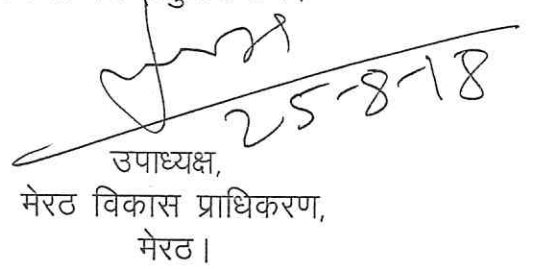 25-8-18
उपाध्यक्ष,
मेरठ विकास प्राधिकरण,
मेरठ।